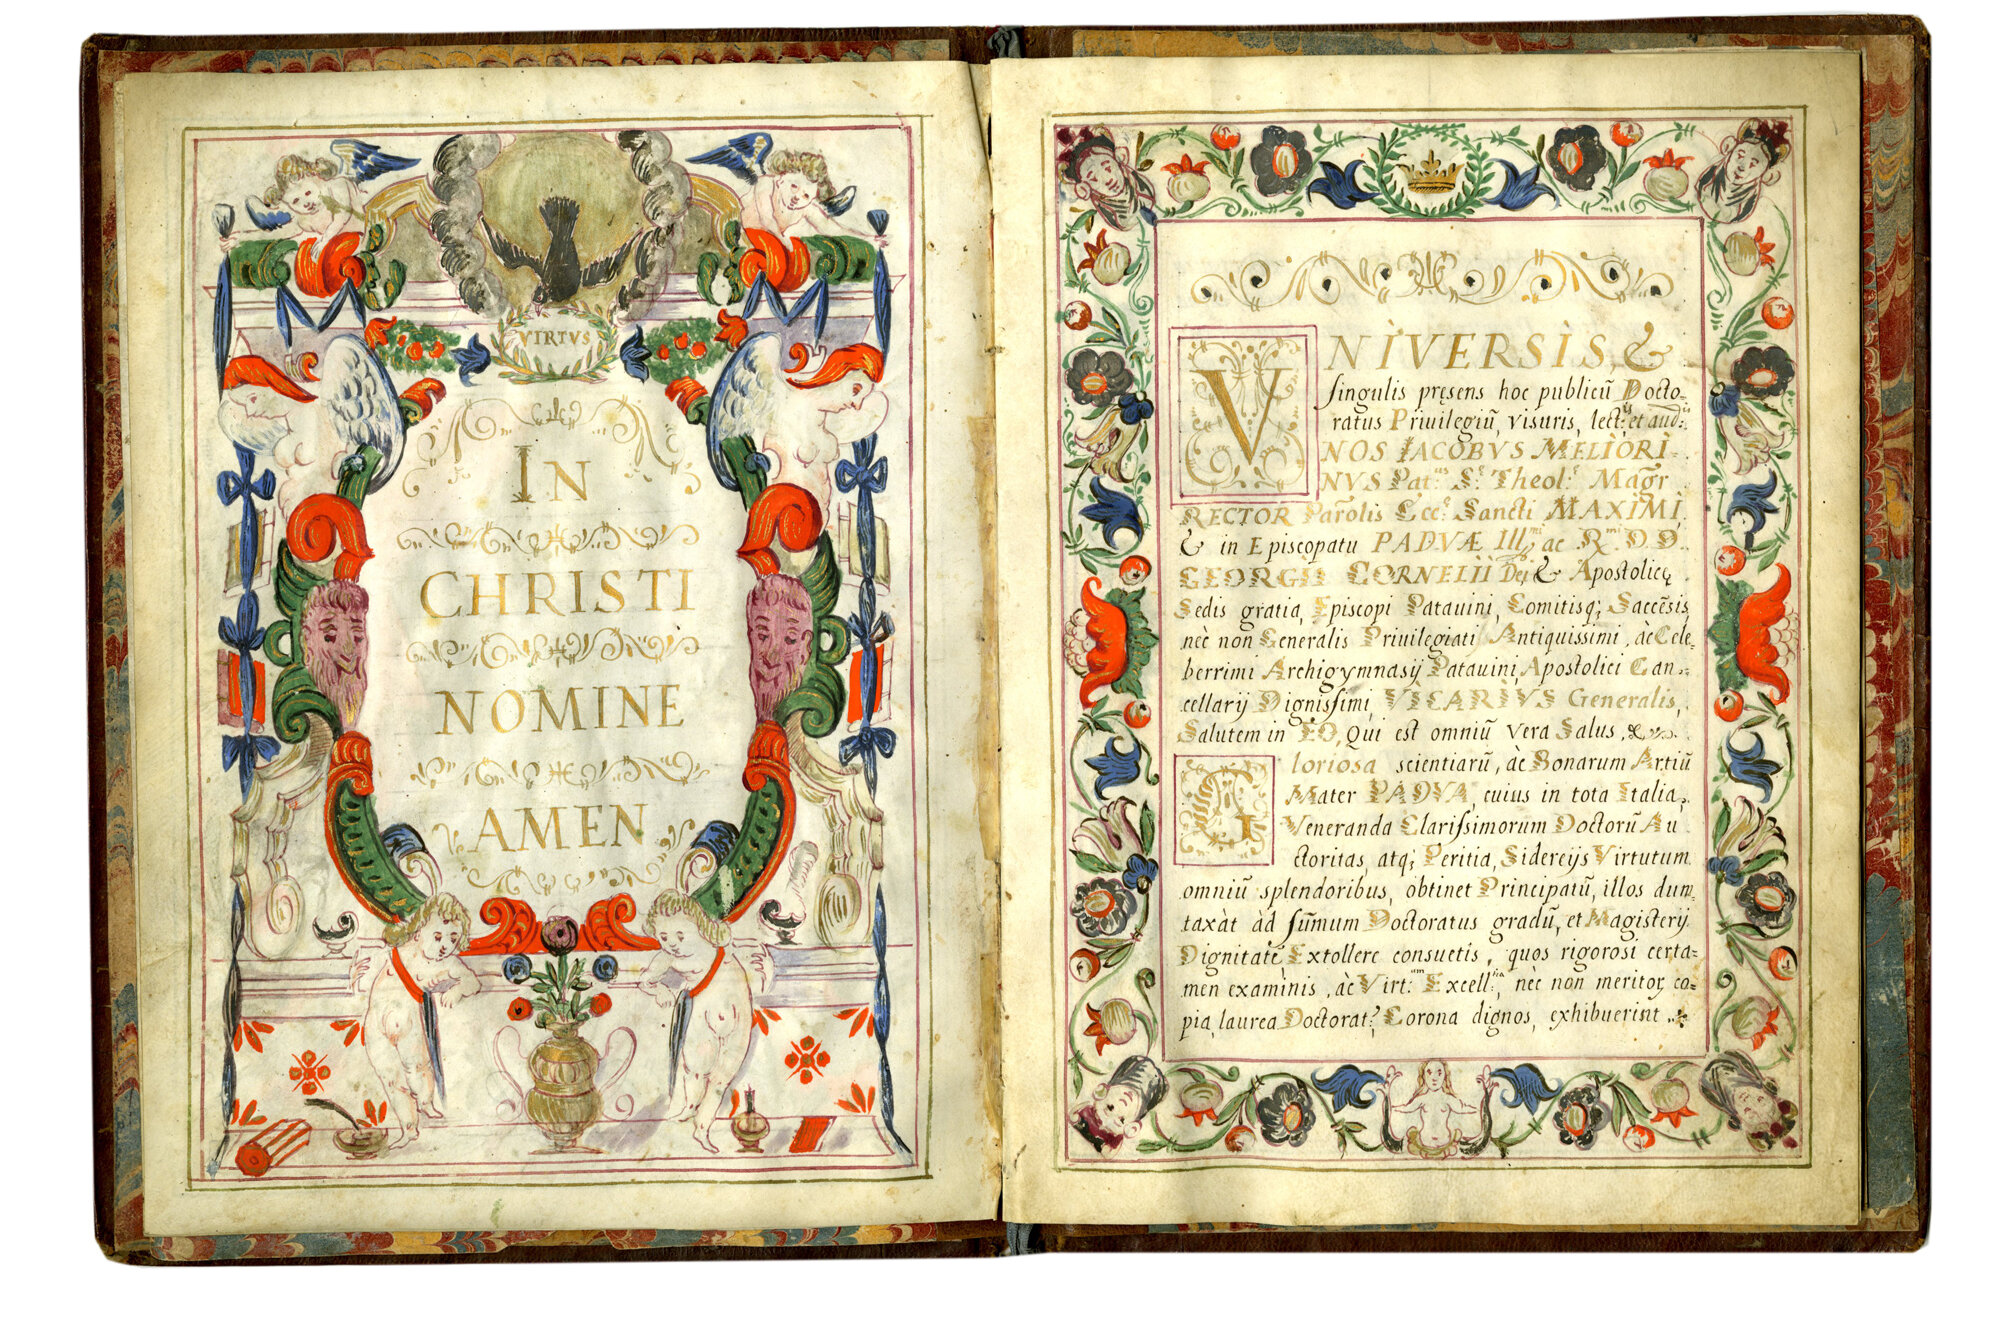 VIRTVS
IN
CHRISTI
NOMINE
AMEN
VNIVERSIS, &
singulis pręsens hoc publicū Docto-
ratus Priuilegiū, visuris, lect: et aud:
NOS IACOBVS MELIORI-
NVS Pat: S: Theol: Magr
RECTOR Paroł̃is Ecc: Sancti MAXIMI,
& in Episcopatu PADVÆ Ill: ac R: D D
GEORGII CORNELII Dei & Apostolicę
Sedis gratia, Episcopi Patauini, Comitisq; Saccēsis
nec non Generalis Priuilegiati Antiquissimi, ac Cele
berrimi Archigymnasij Patauini, Apostolici Can-
cellarij Dignissimi, VICARIVS Generalis,
Salutem in EO, Qui est omniū vera Salus,
Gloriosa scientiarū, ac Bonarum Artiū
Mater PADVA, cuius in tota Italia,
Veneranda Clarissimorum Doctorū Au
ctoritas, atq; Peritia, Sidereijs Virtutum
omniū splendoribus, obtinet Principatū, illos dum
taxàt àd sūmum Doctoratus gradū, et Magisterij
Dignitatē Extollere consuetis, quos rigorosi certa-
men examinis, àc Virt: Excell:, nèc non meritoꝝ co-
pia, laurea Doctorat: Corona dignos, exhibuerint